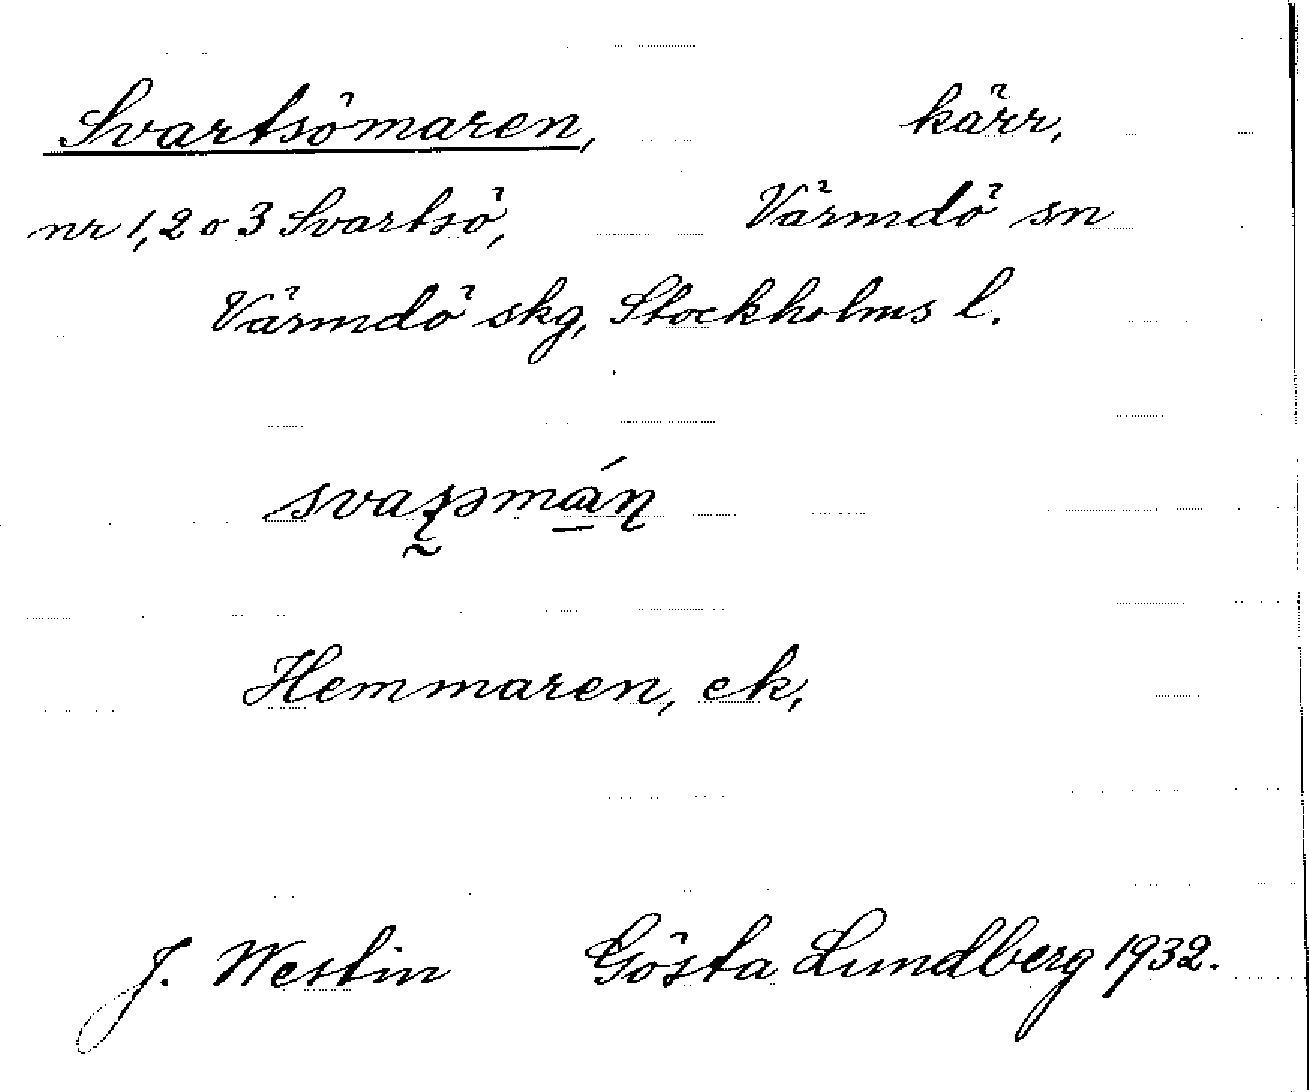 Svartsömaren, kärr,
nr 1, 2 o 3 Svartsö, Värmdö sn
Värmdö skg, Stockholms l.
Hemmaren, ek,
J. Westin Gösta Lundberg 1932.